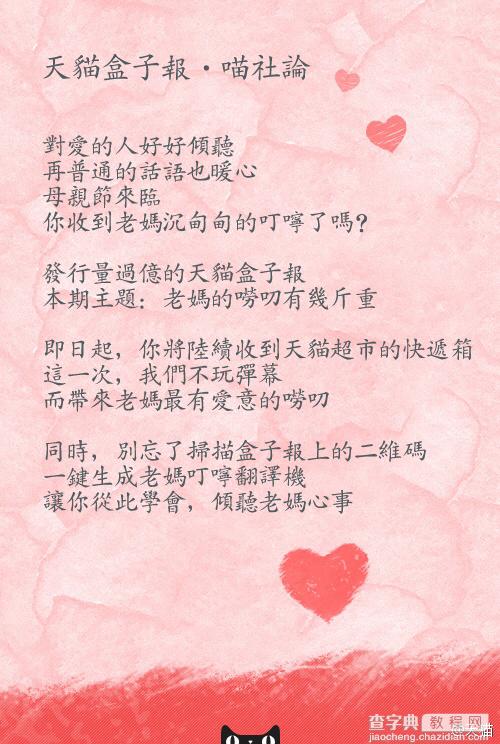 天貓盒子報·喵社論
對愛的人好好傾聽
再普通的話語也暖心
母親節來臨
你收到老媽沉甸甸的叮嚀了嗎?
發行量過億的天貓盒子報
本期主題：老媽的嘮叨有幾斤重
即日起，你將陸續收到天貓超市的快遞箱
這一次，我們不玩彈幕
而帶來老媽最有愛意的嘮叨
同時，別忘了掃描盒子報上的二維碼
一鍵生成老媽叮嚀翻譯機
讓你從此學會，傾聽老媽心事
查字典 教程网
jiaocheng.chazidian.com